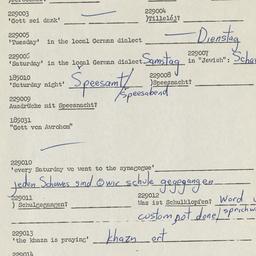 229003
'Gott sei dank'
229004
)Tilleló)?
229005
'Tuesday' in the local German dialect Dienstag
229006
'Saturday' in the local German dialect Samstag
229007
in "Jewish":
185010
'Saturday night' Speesamt/
/speesabend
229008
)Speesnacht?
229009
Ausdrücke mit Speesnacht?
185031
"Gott von Avrohom"
229010
'every Saturday we went to the synagogue'
jeden Schawes sind gegangen
229011
) Schulgegangen?
229012
Was ist Schulklopfen? Word
custom not done
229013
'the khazn is praying' khazn ort
229014